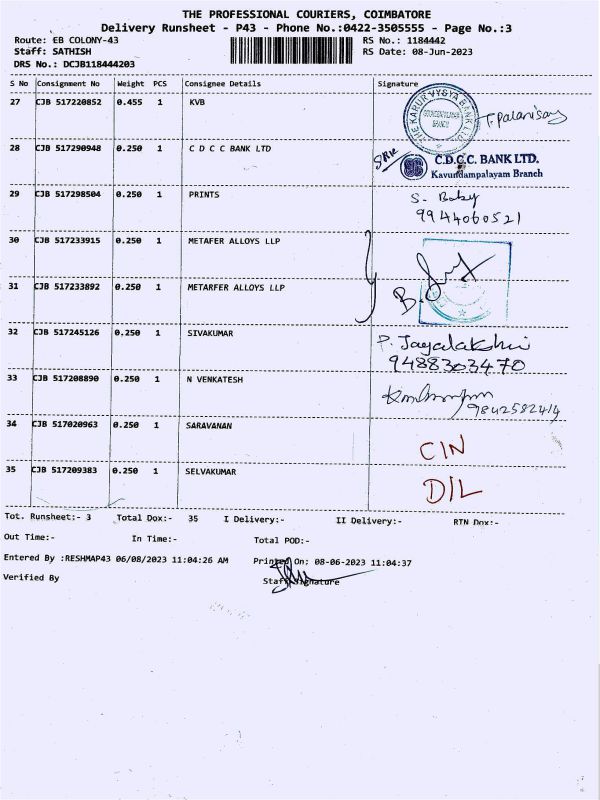 THE PROFESSIONAL COURIERS, COIMBATORE
Delivery Runsheet - P43 - Phone No.:0422-3505555 - Page No.:3
Route: EB COLONY-43 RS No.: 1184442
Staff: SATHISH RS Date: 08-Jun-2023
DRS No.: DCJB118444203
S No Consignment No Weight PCS Consignee Details Signature
27 CJB 517220852 0.455 1 KVB THE KARUR VYSYA BANK LTD BRANCH T. Palanisamy
28 CJB 517290948 0.250 1 C D C C BANK LTD C.D.C.C. BANK LTD.
Kavundampalayam Branch
29 CJB 517298504 0.250 1 PRINTS S. Baby
9944060521
30 CJB 517233915 0.250 1 METAFER ALLOYS LLP
31 CJB 517233892 0.250 1 METARFER ALLOYS LLP
32 CJB 517245126 0.250 1 SIVAKUMAR P. Jayalakshmi
9488303470
33 CJB 517208890 0.250 1 N VENKATESH
9842582414
34 CJB 517020963 0.250 1 SARAVANAN CIN
35 CJB 517209383 0.250 1 SELVAKUMAR D/L
Tot. Runsheet:- 3 Total Dox:- 35 I Delivery:- II Delivery:- RTN Dox:-
Out Time:- In Time:- Total POD:-
Entered By :RESHMAP43 06/08/2023 11:04:26 AM Printed On: 08-06-2023 11:04:37
Verified By Staff Signature